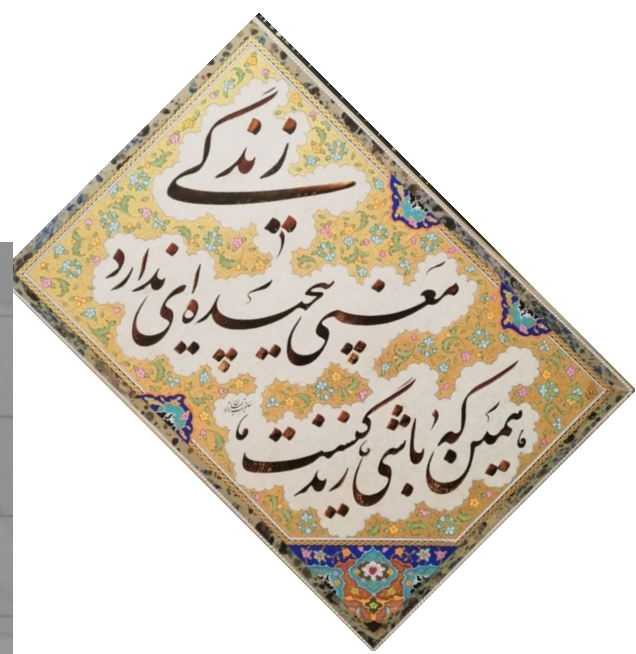 زندگی
معنی پیچیده ای ندارد
همین که باشی زندگیست